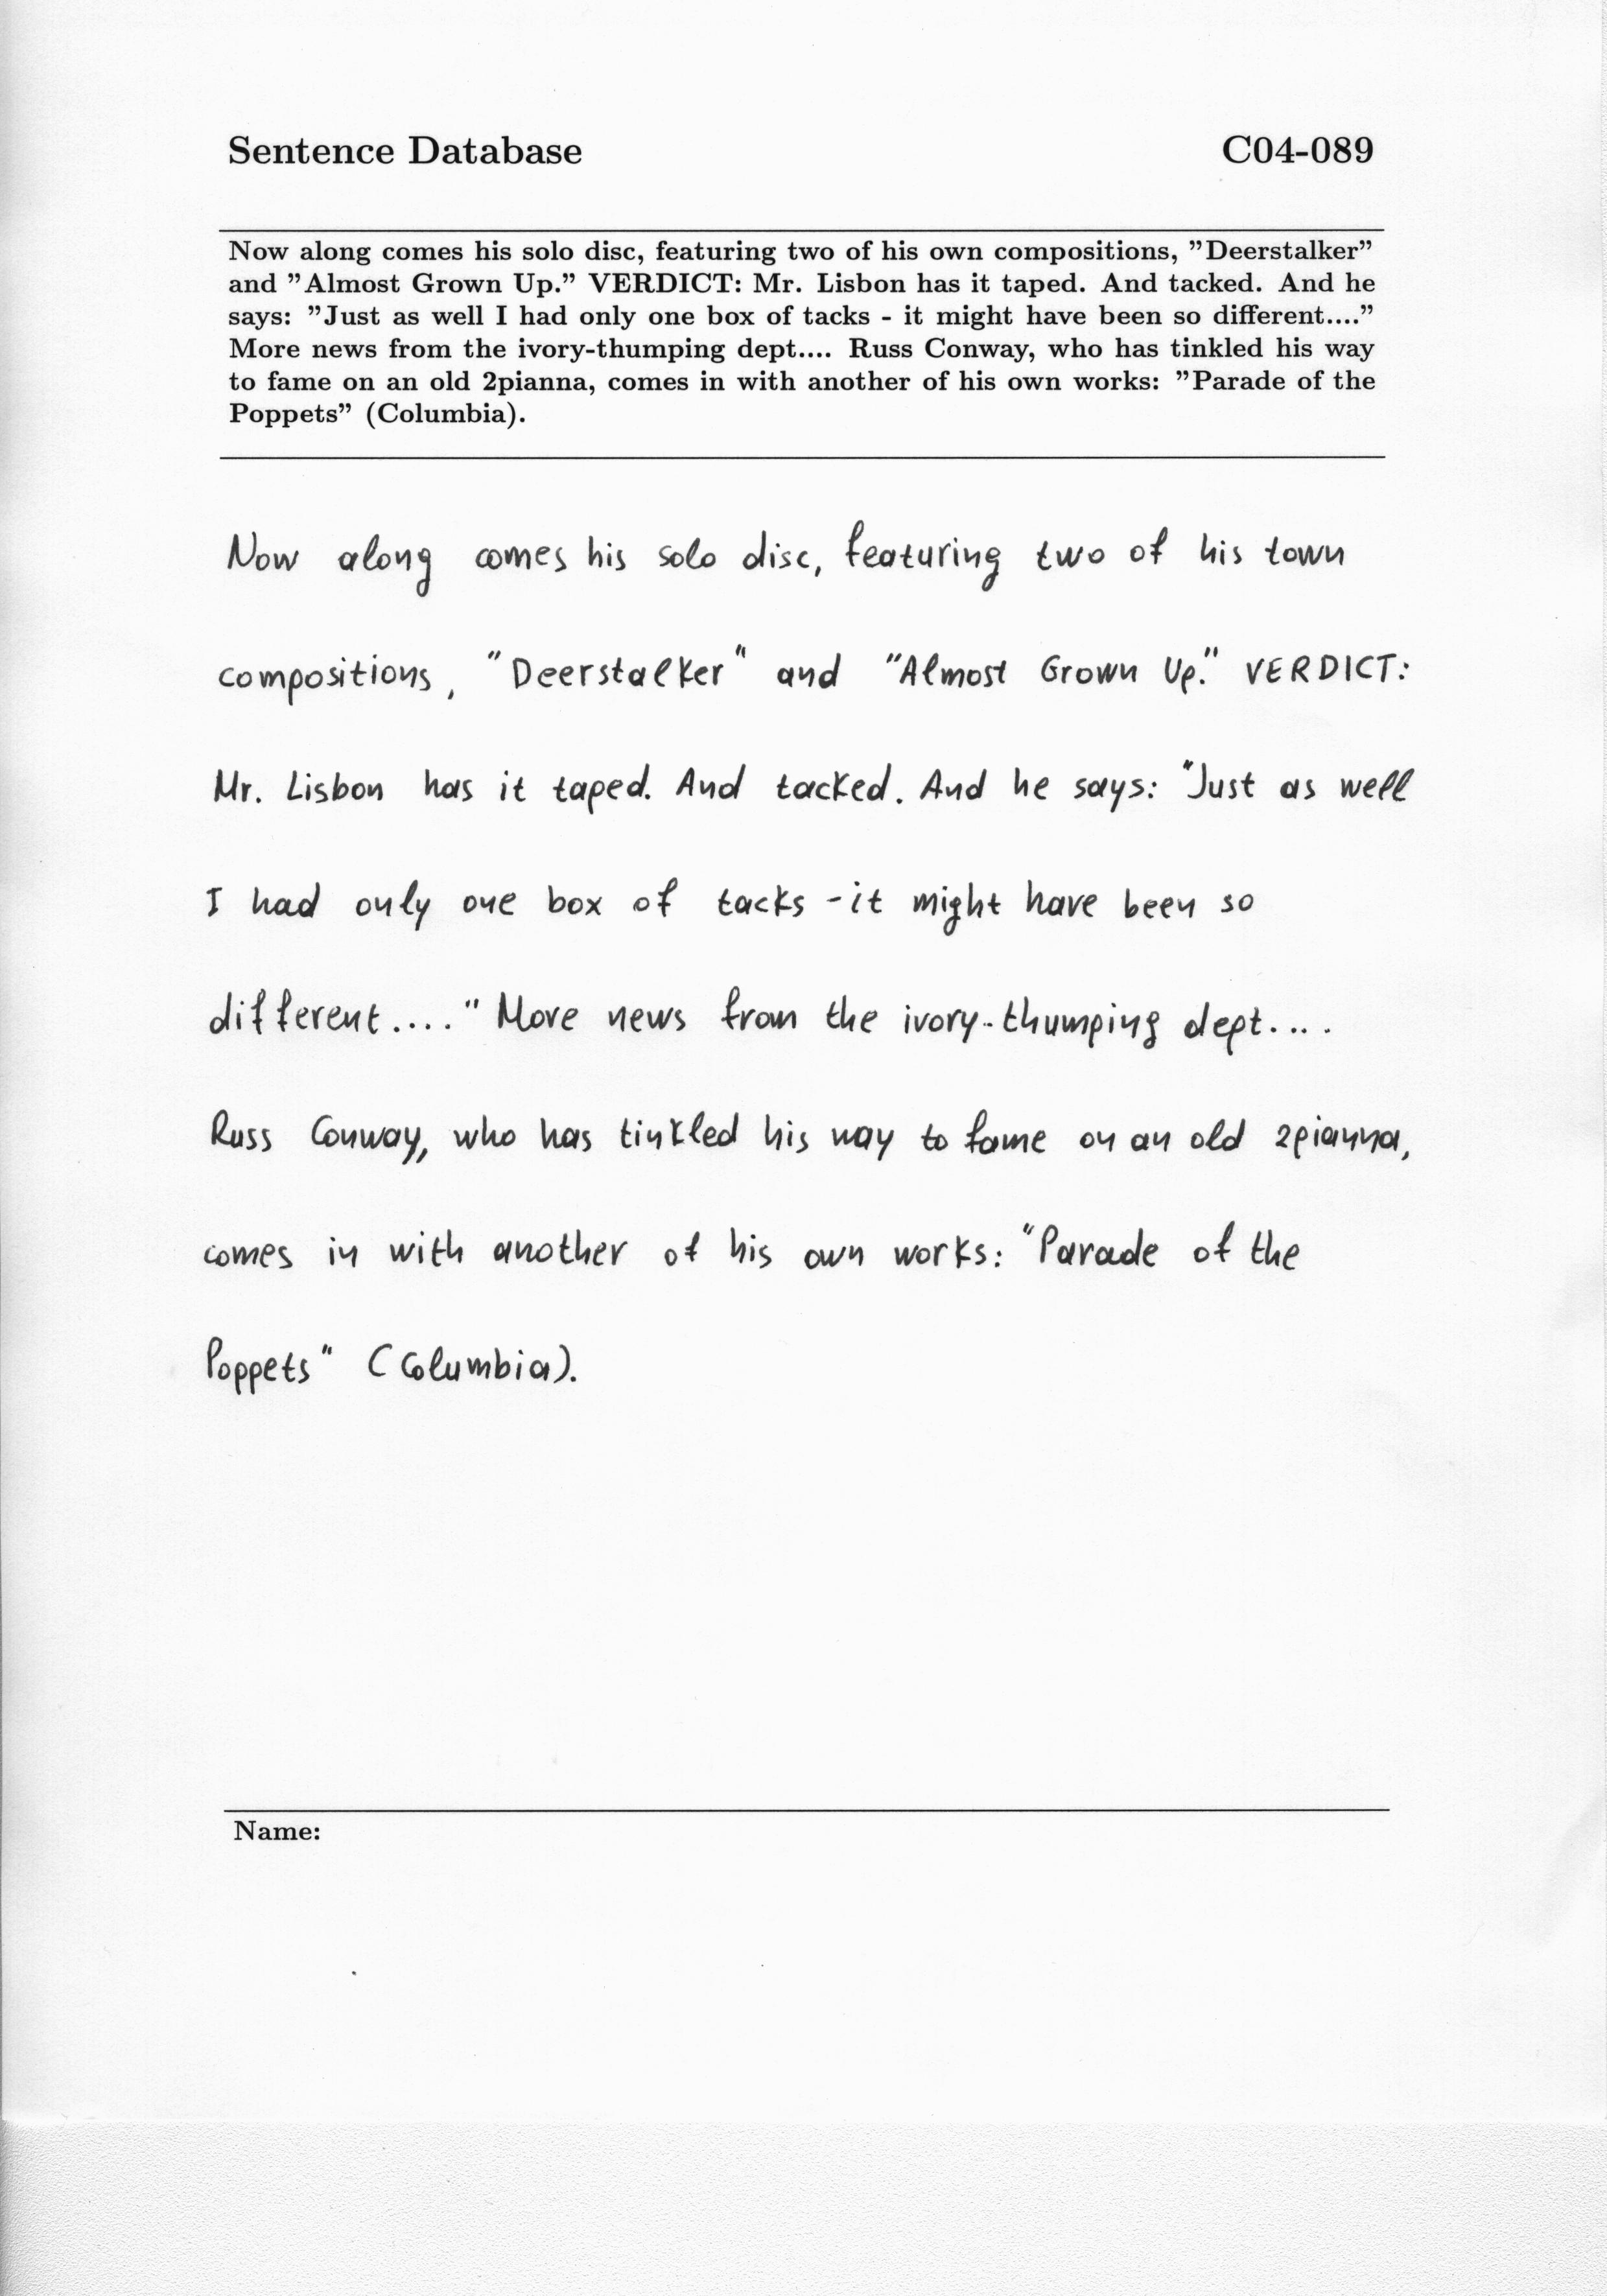 Sentence Database C04-089
Now along comes his solo disc, featuring two of his own compositions, ”Deerstalker”
and ”Almost Grown Up.” VERDICT: Mr. Lisbon has it taped. And tacked. And he
says: ”Just as well I had only one box of tacks - it might have been so different....”
More news from the ivory-thumping dept.... Russ Conway, who has tinkled his way
to fame on an old 2pianna, comes in with another of his own works: ”Parade of the
Poppets” (Columbia).
Now along comes his solo disc, featuring two of his town
compositions, "Deerstalker" and "Almost Grown Up." VERDICT:
Mr. Lisbon has it taped. And tacked. And he says: "Just as well
I had only one box of tacks - it might have been so
different...." More news from the ivory-thumping dept....
Russ Conway, who has tinkled his way to fame on an old 2pianna,
comes in with another of his own works: "Parade of the
Poppets" (Columbia).
Name: